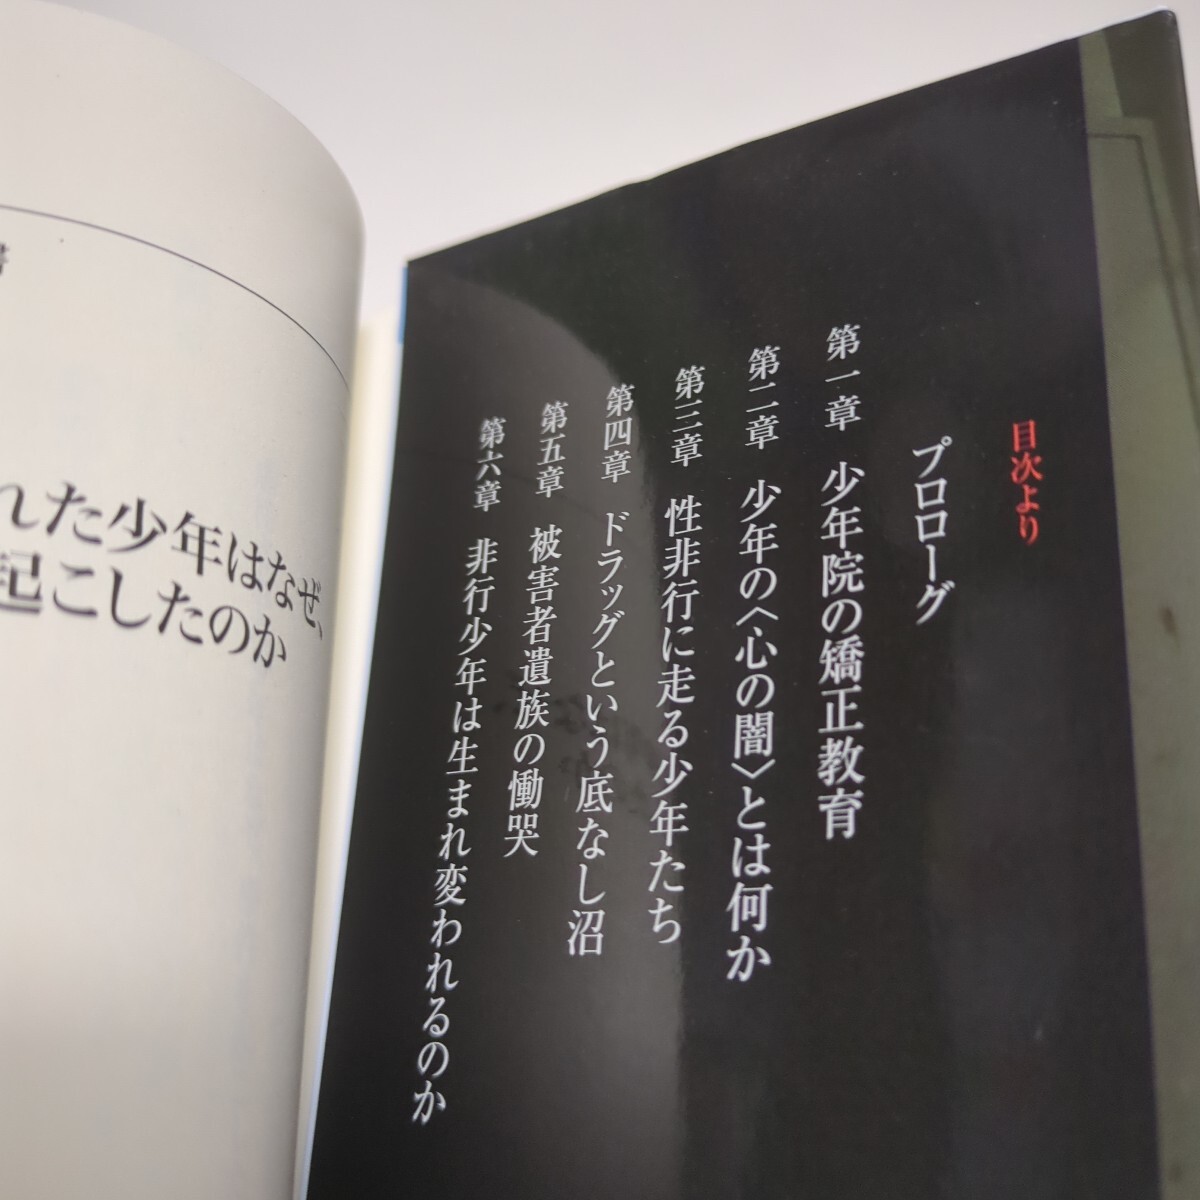 目次より
プロローグ
第一章 少年院の矯正教育
第二章 少年の〈心の闇〉とは何か
第三章 性非行に走る少年たち
第四章 ドラッグという底なし沼
第五章 被害者遺族の慟哭
第六章 非行少年は生まれ変われるのか
書
れた少年はなぜ、
起こしたのか